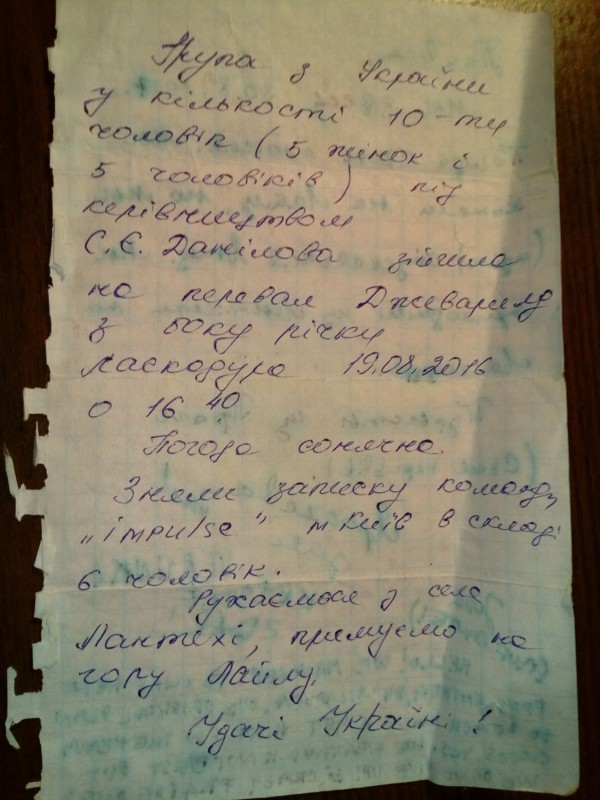 Група з України
у кількості 10-ти
чоловік (5 жінок і
5 чоловіків) під
керівництвом
С.Є. Данілова зійшла
на перевал Джеварилд
з боку річки
Ласкадура 19.08.2016
о 16 40
Погода сонячна.
Зняли записку команди
„impulse" м Київ в складі
6 чоловік.
Рухаємося з села
Лантехі, прямуємо на
гору Лайлу.
Удачі Україні!